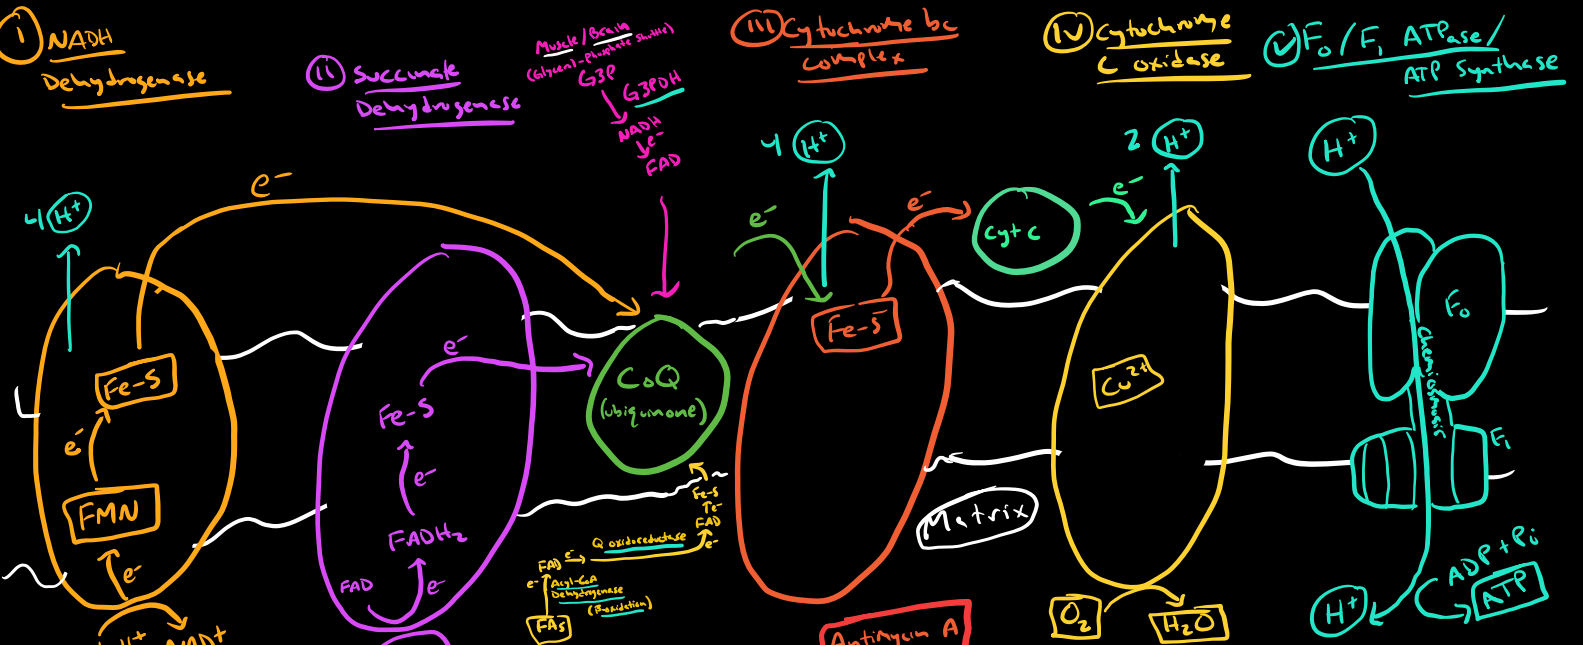 i NADH
Dehydrogenase
ii Succinate
Dehydrogenase
Muscle/Brain
(Glycerol-Phosphate Shuttle)
G3P
G3PDH
NADH
e-
FAD
iii Cytochrome bc
complex
iv Cytochrome
c oxidase
v F₀/F₁ ATPase/
ATP Synthase
4 H+
e-
Fe-S
e-
FMN
e-
H+
NAD+
e-
Fe-S
e-
FADH₂
FAD
e-
CoQ
(ubiquinone)
Fe-S
e-
FAD
e-
Q oxidoreductase
FAD e-
e-
Acyl-CoA
Dehydrogenase
(β-oxidation)
FAs
4 H+
e-
e-
Fe-S
Antimycin A
Cyt c
e-
2 H+
Cu²⁺
Matrix
O₂
H₂O
H+
F₀
Chemiosmosis
F₁
ADP + Pi
ATP
H+